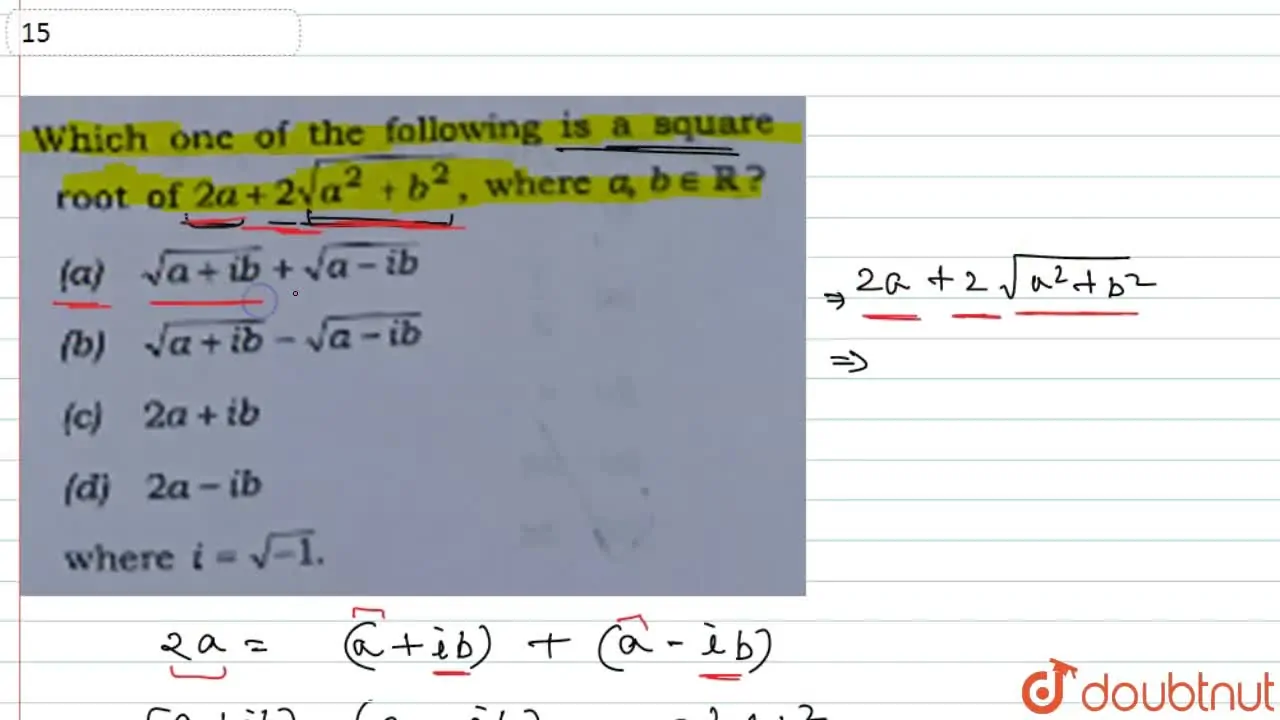 15
Which one of the following is a square
root of 2a + 2√(a² + b²), where a, b ∈ ℝ?
(a) √(a + ib) + √(a − ib)
(b) √(a + ib) − √(a − ib)
(c) 2a + ib
(d) 2a − ib
where i = √−1.
⇒ 2a + 2√(a² + b²)
⇒
2a = (a + ib) + (a − ib)
doubtnut